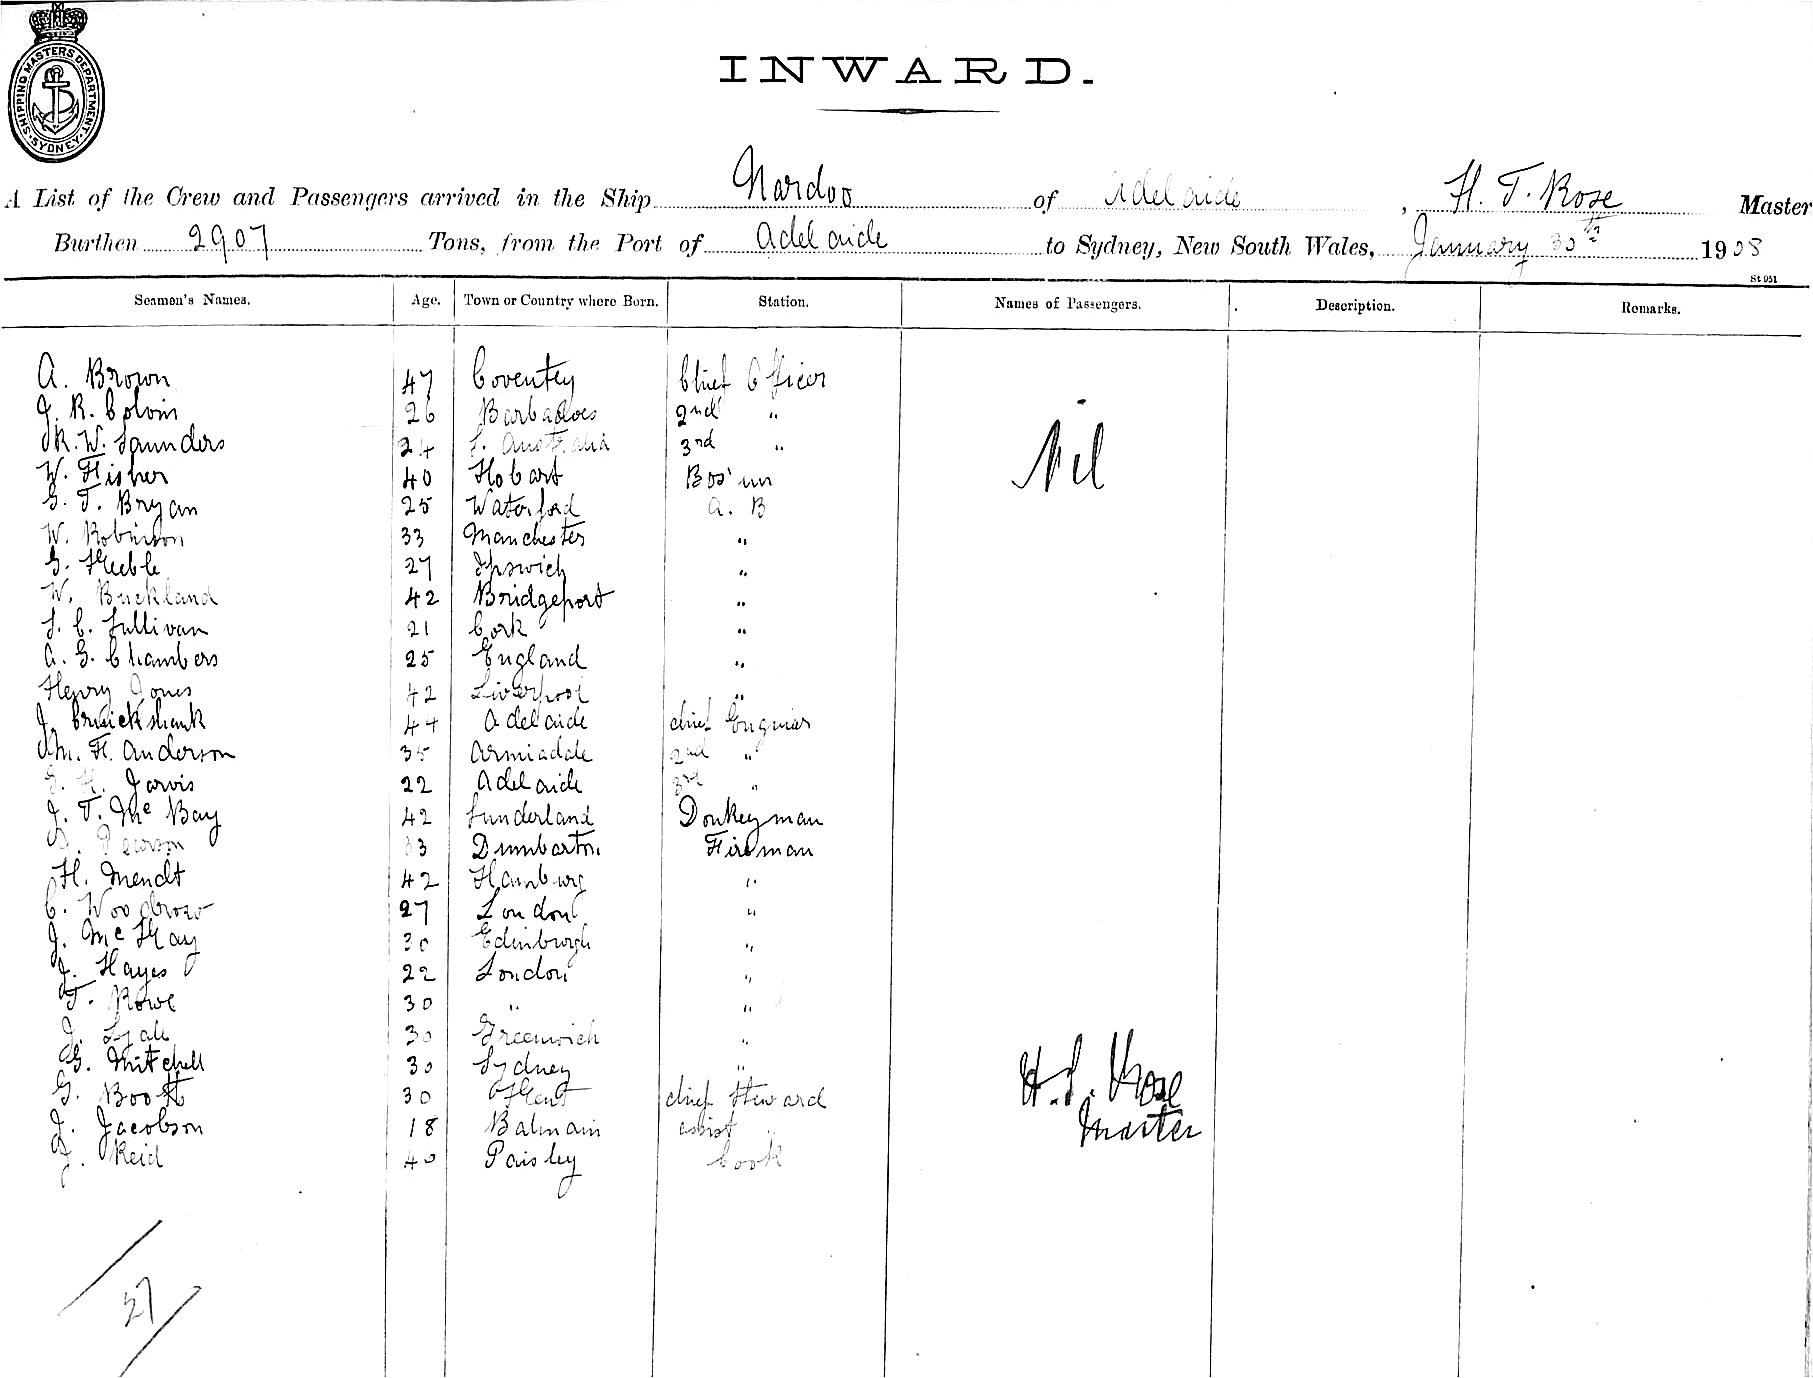 SHIPPING MASTERS DEPARTMENT · SYDNEY ·
INWARD.
A List of the Crew and Passengers arrived in the Ship Nardoo of Adelaide, H. T. Rose Master
Burthen 2907 Tons, from the Port of Adelaide to Sydney, New South Wales, January 30th 1908
St 051
Seamen's Names. Age. Town or Country where Born. Station. Names of Passengers. Description. Remarks.
A. Brown 47 Coventry Chief Officer
J. R. Colvin 26 Barbadoes 2nd "
R. W. Saunders 24 S. Australia 3rd "
Nil
W. Fisher 40 Hobart Bos'un
G. T. Bryan 25 Waterford A. B
W. Robinson 33 Manchester "
G. Keeble 27 Ipswich "
W. Buckland 42 Bridgeport "
S. C. Sullivan 21 Cork "
A. G. Chambers 25 England "
Henry Jones 42 Liverpool "
J. Cruickshank 44 Adelaide chief Engineer
M. H. Anderson 35 Armiadale 2nd "
H. Jarvis 22 Adelaide 3rd "
J. T. Mc Bay 42 Sunderland Donkeyman
Pearson 33 Dumbarton Fireman
H. Mendt 42 Hamburg "
C. Woodrow 27 London "
J. Mc Kay 30 Edinburgh "
J. Hayes 22 London "
T. Rowe 30 " "
J. Lyall 30 Greenwich "
G. Mitchell 30 Sydney "
G. Booth 30 Kent chief Steward
H. T. Rose
Master
J. Jacobson 18 Balmain assist "
J. Reid 40 Paisley Cook
27